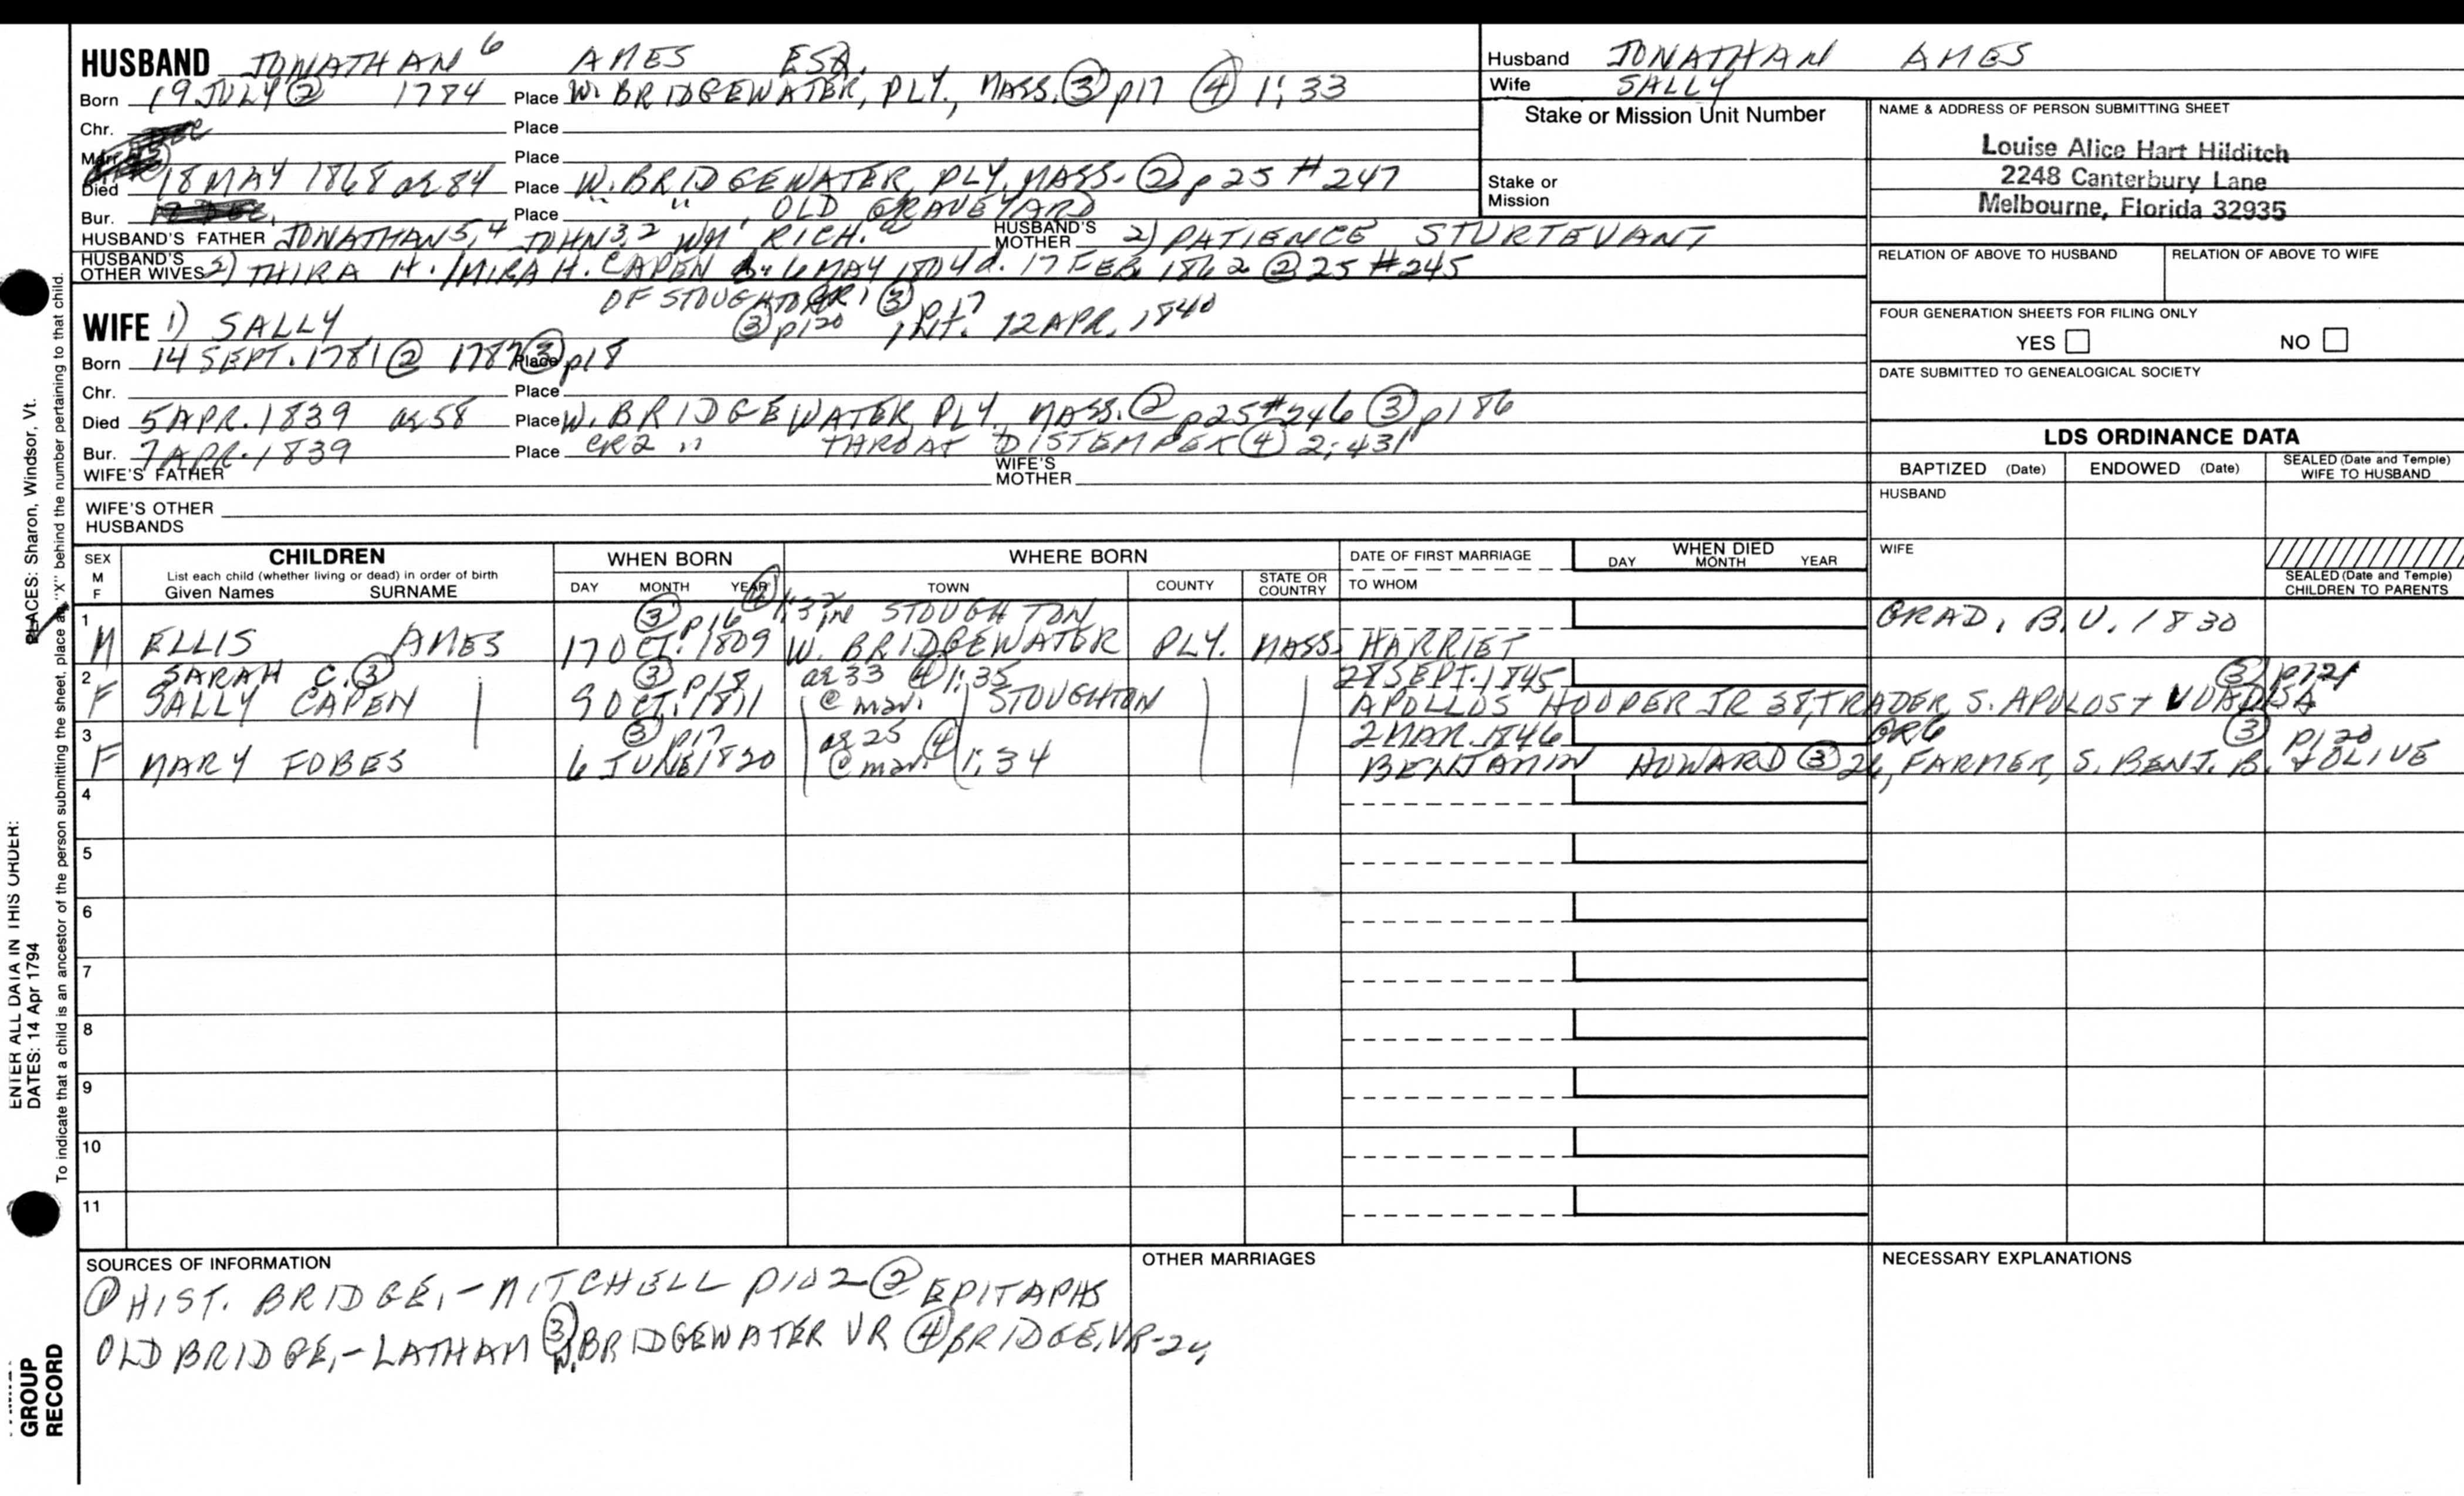 HUSBAND JONATHAN 6 AMES ESQ.
Born 19 JULY ② 1784 Place W. BRIDGEWATER, PLY., MASS. ③ p17 ④ 1;33
Chr. Place
Marr. Place
Died 18 MAY 1868 ae 84 Place W. BRIDGEWATER, PLY. MASS. ② p25 #247
Bur. Place " " , OLD GRAVEYARD
HUSBAND'S FATHER JONATHAN 5,4 JOHN 3,2 WM' RICH. HUSBAND'S MOTHER 2) PATIENCE STURTEVANT
HUSBAND'S OTHER WIVES 2) THIRA H. /MIRA H. CAPEN b. 6 MAY 1804 d. 17 FEB 1862 ② 25 #245
OF STOUGHTON ③ p17
③ p120 int. 12 APR. 1840
WIFE 1) SALLY
Born 14 SEPT. 1781 ② 1787 ③ p18 Place
Chr. Place
Died 5 APR. 1839 ae 58 Place W. BRIDGEWATER, PLY. MASS. ② p25 #246 ③ p186
Bur. 7 APR. 1839 Place GR2 " THROAT DISTEMPER ④ 2;431
WIFE'S FATHER WIFE'S MOTHER
WIFE'S OTHER HUSBANDS
Husband JONATHAN AMES
Wife SALLY
Stake or Mission Unit Number
Stake or Mission
NAME & ADDRESS OF PERSON SUBMITTING SHEET
Louise Alice Hart Hilditch
2248 Canterbury Lane
Melbourne, Florida 32935
RELATION OF ABOVE TO HUSBAND RELATION OF ABOVE TO WIFE
FOUR GENERATION SHEETS FOR FILING ONLY
YES NO
DATE SUBMITTED TO GENEALOGICAL SOCIETY
LDS ORDINANCE DATA
BAPTIZED (Date) ENDOWED (Date) SEALED (Date and Temple) WIFE TO HUSBAND
HUSBAND
WIFE
SEALED (Date and Temple) CHILDREN TO PARENTS
SEX M F CHILDREN WHEN BORN WHERE BORN DATE OF FIRST MARRIAGE WHEN DIED
List each child (whether living or dead) in order of birth DAY MONTH YEAR TOWN COUNTY STATE OR COUNTRY TO WHOM DAY MONTH YEAR
Given Names SURNAME
1 ③ p16 ④ 1;32 IN STOUGHTON GRAD, B.U. 1830
M ELLIS AMES 17 OCT. 1809 W. BRIDGEWATER PLY. MASS. HARRIET
2 SARAH C. ③ ③ p18 ae 33 ④ 1;35 28 SEPT. 1845 ③ p121
F SALLY CAPEN 9 OCT. 1811 @ mar. STOUGHTON APOLLOS HOOPER JR 38, TRADER, S. APOLOS +
3 ③ p17 ae 25 ④ 2 MAR. 1846 GR6 ③ p120
F MARY FOBES 6 JUNE 1820 @ mar. 1;34 BENJAMIN HOWARD ③ 26, FARMER, S. BENJ. B. + OLIVE
4
5
6
7
8
9
10
11
SOURCES OF INFORMATION
① HIST. BRIDGE, - MITCHELL p102 ② EPITAPHS
OLD BRIDGE, - LATHAM ③ W. BRIDGEWATER VR ④ BRIDGE, VR-2v
OTHER MARRIAGES
NECESSARY EXPLANATIONS
ENTER ALL DATA IN THIS ORDER:
DATES: 14 Apr 1794
PLACES: Sharon, Windsor, Vt.
To indicate that a child is an ancestor of the person submitting the sheet, place an "X" behind the number pertaining to that child.
GROUP RECORD